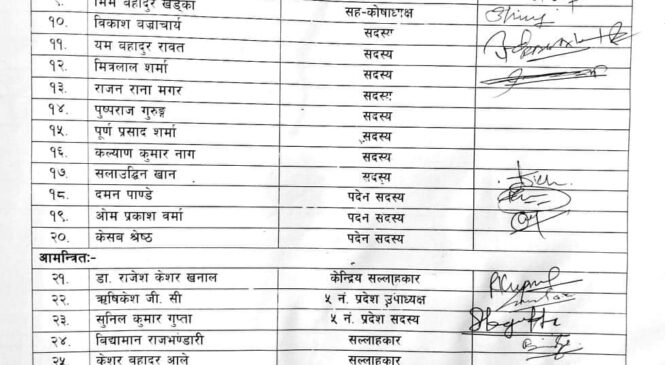 ९. भिम बहादुर खड्का सह-कोषाध्यक्ष
१०. विकाश वज्राचार्य सदस्य
११. यम वहादुर रावत सदस्य
१२. मित्रलाल शर्मा सदस्य
१३. राजन राना मगर सदस्य
१४. पुष्पराज गुरुङ्ग सदस्य
१५. पूर्ण प्रसाद शर्मा सदस्य
१६. कल्याण कुमार नाग सदस्य
१७. सलाउद्दिन खान सदस्य
१८. दमन पाण्डे पदेन सदस्य
१९. ओम प्रकाश वर्मा पदेन सदस्य
२०. केसब श्रेष्ठ पदेन सदस्य
आमन्त्रितः-
२१. डा. राजेश केशर खनाल केन्द्रिय सल्लाहकार
२२. ऋषिकेश जी. सी ५ नं. प्रदेश उपाध्यक्ष
२३. सुनिल कुमार गुप्ता ५ नं. प्रदेश सदस्य
२४. विद्यामान राजभण्डारी सल्लाहकार
२५ केशर बहादर आले सल्लाहकार